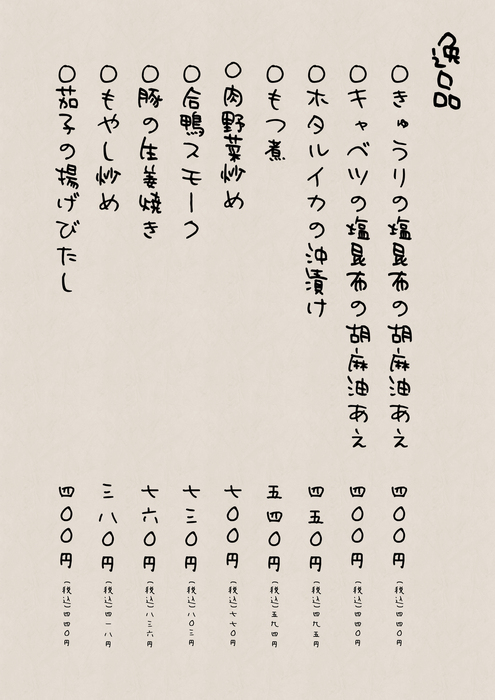 逸品
〇きゅうりの塩昆布の胡麻油あえ 四〇〇円（税込）四四〇円
〇キャベツの塩昆布の胡麻油あえ 四〇〇円（税込）四四〇円
〇ホタルイカの沖漬け 四五〇円（税込）四九五円
〇もつ煮 五四〇円（税込）五九四円
〇肉野菜炒め 七〇〇円（税込）七七〇円
〇合鴨スモーク 七三〇円（税込）八〇三円
〇豚の生姜焼き 七六〇円（税込）八三六円
〇もやし炒め 三八〇円（税込）四一八円
〇茄子の揚げびたし 四〇〇円（税込）四四〇円